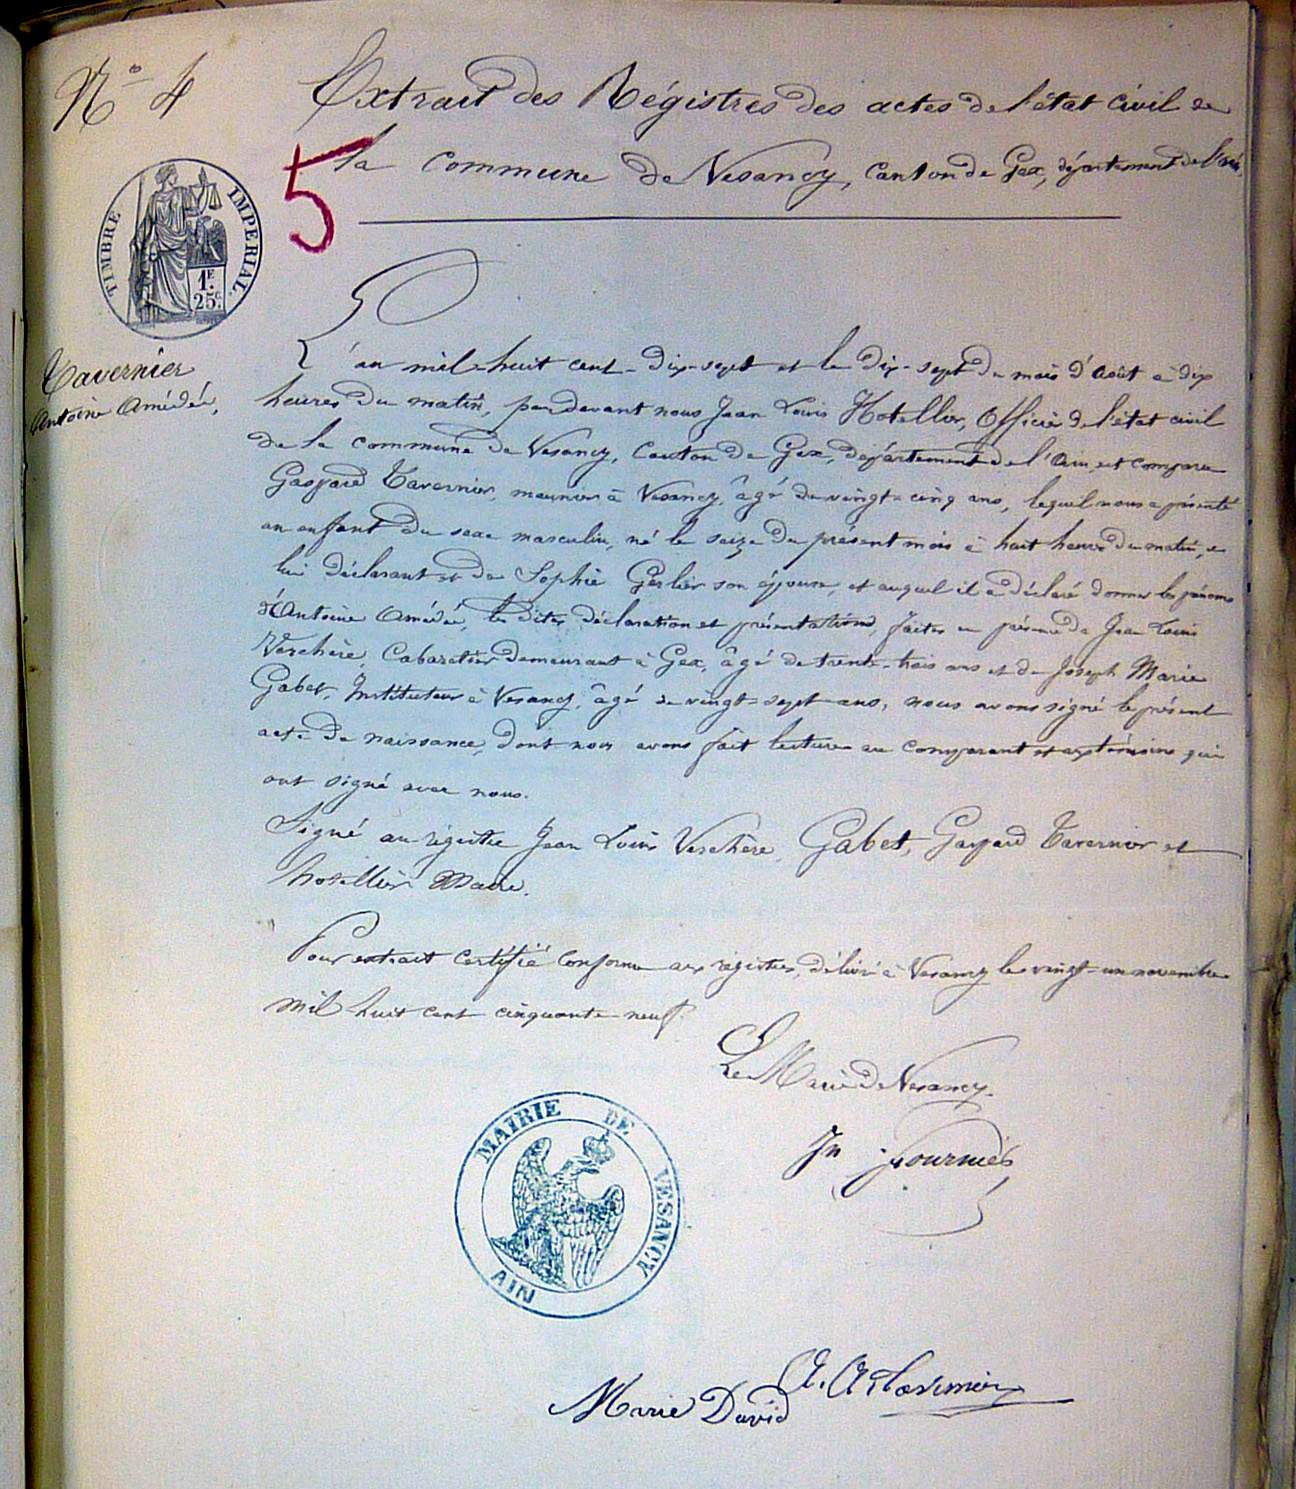 N° 4
Extrait des Régistres des actes de l'état civil de
la Commune de Vesancy, Canton de Gex, département de l'Ain.
5
TIMBRE IMPERIAL
1F. 25c.
Tavernier
Antoine Amédée,
L'an mil-huit cent-dix-sept et le dix-sept du mois d'Août à dix
heures du matin, pardevant nous Jean Louis Hotellier, Officié de l'état civil
de la commune de Vesancy, Canton de Gex, département de l'Ain est comparu
Gaspard Tavernier, meunier à Vesancy, âgé de vingt-cinq ans, lequel nous a présenté
un enfant du sexe masculin, né le seize du présent mois à huit heures du matin, de
lui déclarant et de Sophie Gerlier son épouse, et auquel il a déclaré donner les prénoms
d'Antoine Amédée, les dites déclaration et présentations, faites en présence de Jean Louis
Verchère, Cabaretier demeurant à Gex, âgé de trente-trois ans et de Joseph Marie
Gabet, Instituteur à Vesancy, âgé de vingt-sept ans, nous avons signé le présent
acte de naissance, dont nous avons fait lecture au comparant et aux témoins qui
ont signé avec nous.
Signé au régistre Jean Louis Verchère, Gabet, Gaspard Tavernier et
hotellier Maire.
Pour extrait certifié conforme aux régistres, délivré à Vesancy le vingt-un novembre
mil huit cent cinquante-neuf.
Le Maire de Vesancy.
Jn Fournier
MAIRIE DE VESANCY
AIN
Marie David